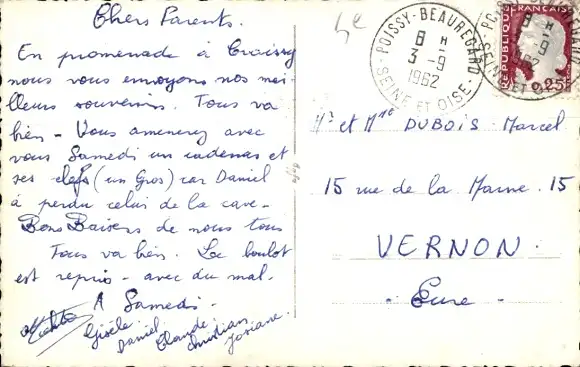 Chers Parents.
En promenade à Croissy
nous vous envoyons nos mei
lleurs souvenirs. Tous va
bien - Vous amenerez avec
vous Samedi un cadenas et
ses clefs (un Gros) car Daniel
à perdu celui de la cave -
Bons Baisers de nous tous
Tous va bien. Le boulot
est repris - avec du mal.
A Samedi -
Gisèle
Daniel
Claude
Christian
Josiane.
5e
POISSY-BEAUREGARD
8 H
3 -9
1962
SEINE ET OISE
REPUBLIQUE FRANÇAISE
0,25F
8 H
-9
1962
Mr et Mme DUBOIS Marcel
15 rue de la Marne. 15
VERNON.
- Eure -